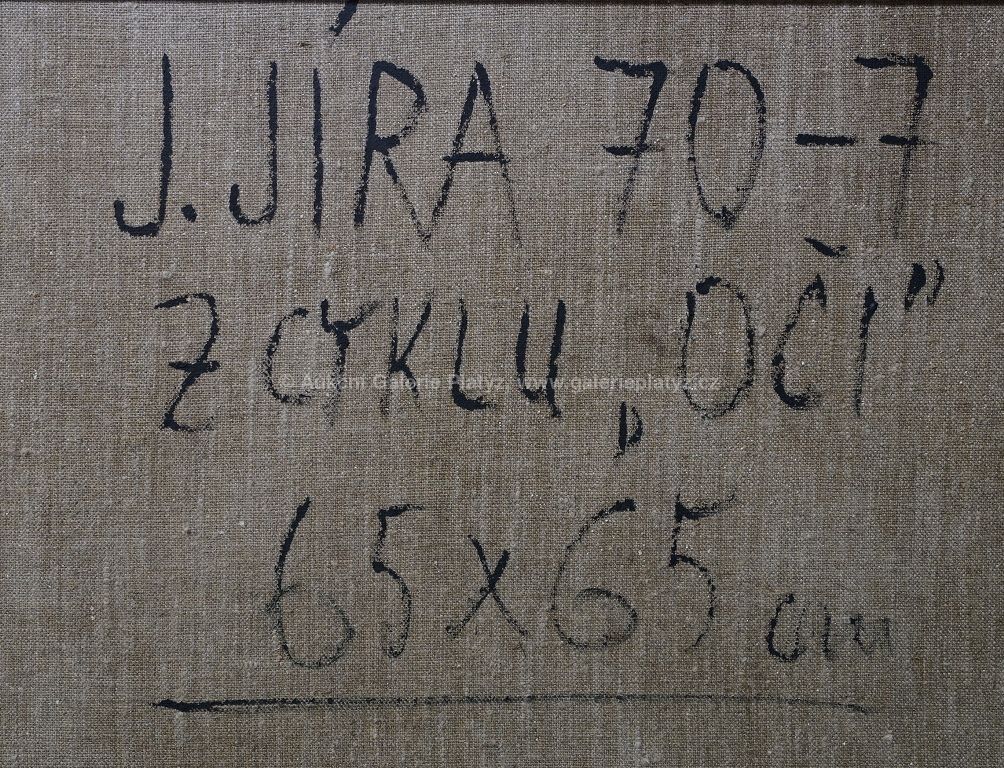 J. JÍRA 70-7
Z CYKLU „OČI"
© Aukční Galerie Platýz, www.galerieplatyz.cz
65x65 cm